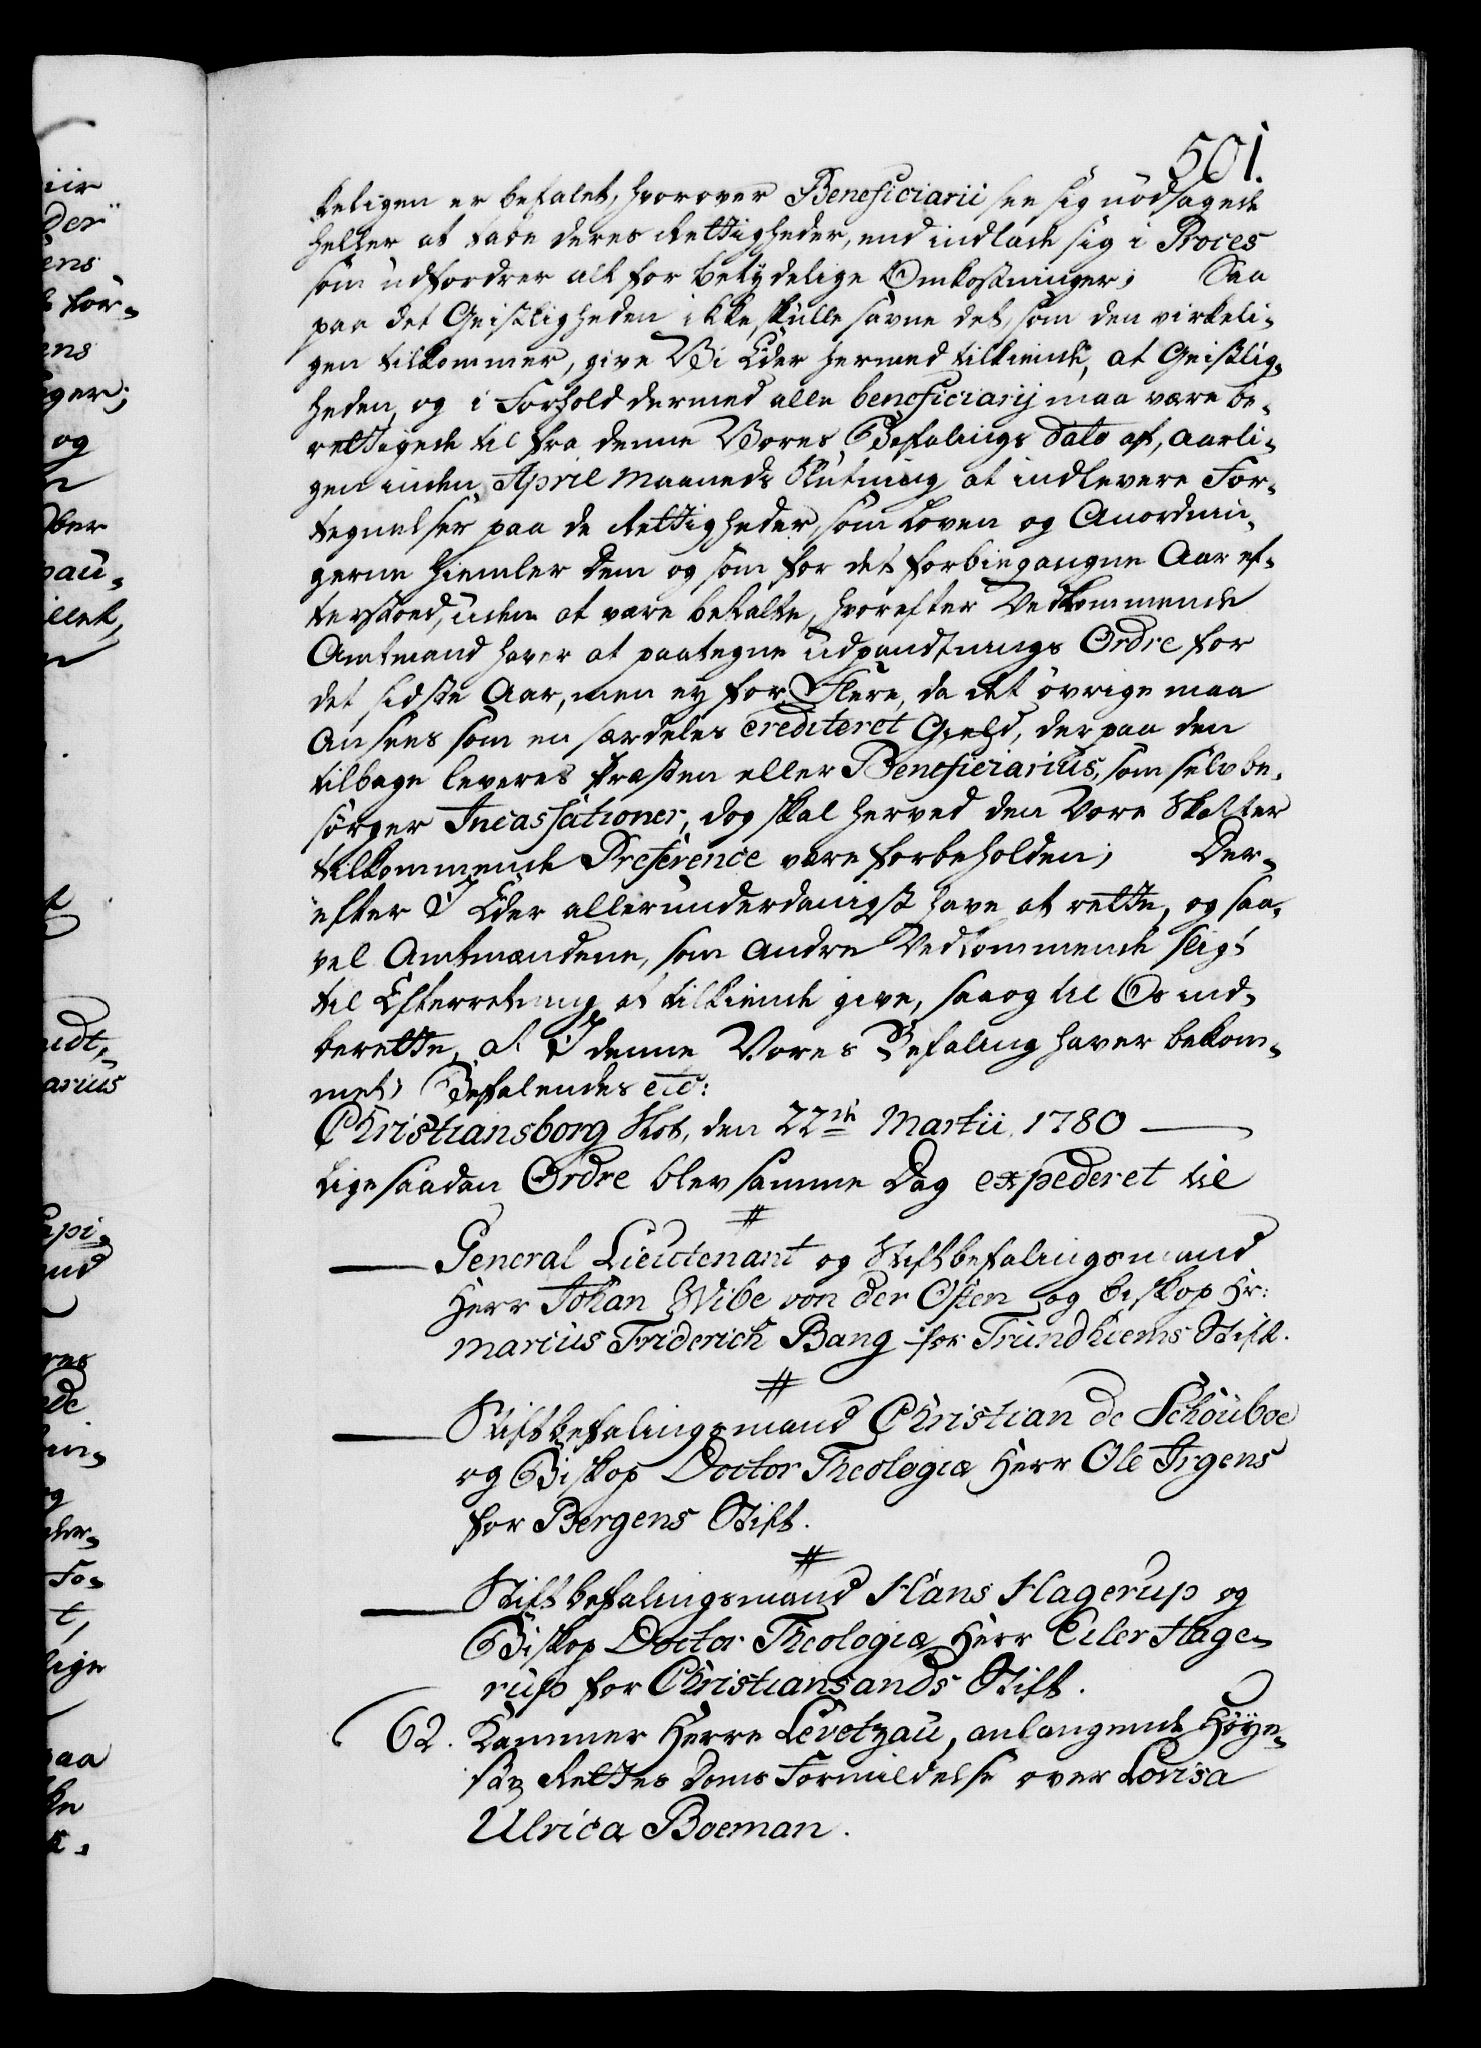 501.
keligen er befalet, hvorover Beneficiarii see sig nödsagede
heller at tabe deres Rettigheder, end indlade sig i Proces
som udfordrer alt for betydelige Omkostninger; Saa
paa det Geistligheden ikke skulle savne det, som den virkeli-
gen tilkommer, give Vi Eder hermed tilkiende, at Geistlig-
heden, og i Forhold dermed alle beneficiarij maa være be-
rettigede til fra denne Vores Befalings dato af, aarli-
gen inden April Maaneds Slutning at indlevere For-
tegnelser paa de Rettigheder, som Loven og Anordnin-
gerne hiemler dem og som for det forbiegangne Aar ef-
terstoed, uden at være betalte, hvorefter Vedkommende
Amtmand haver at paategne Udpandtnings Ordre for
det sidste Aar, men ey for Flere, da det övrige maa
Ansees som en særdeles crediteret Gield, der paa den
tilbage leveres Præsten eller Beneficiarius, som selv be-
sörger Incassationer, dog skal herved den Vore Skatter
tilkommende Preference være forbeholden; Der-
efter I Eder allerunderdanigst have at rette, og saa-
vel Amtmændene, som Andre Vedkommende sligt
til Efterretning at tilkiende give, saa og til Os ind-
berette, at I denne Vores Befaling haver bekom-
met; Befalendes etc:
Christiansborg Slot, den 22de Martii 1780
Ligesaadan Ordre blev samme Dag expederet til
#
General Lieutenant og Stiftbefalingsmand
Herr Johan Wibe von der Osten og biskop Hr:
Marcus Friderich Bang for Trundhiems Stift.
#
Stiftbefalingsmand Christian de Schouboe
og Biskop Doctor Theologiæ Herr Ole Irgens
for Bergens Stift.
#
Stiftbefalingsmand Hans Hagerup og
Biskop Doctor Theologiæ Herr Eiler Hage-
rup for Christiansands Stift.
62. Kammer Herre Levetzau, anlangende Höye-
ste Rettes Doms Formildelse over Lovisa
Ulrica Boeman.